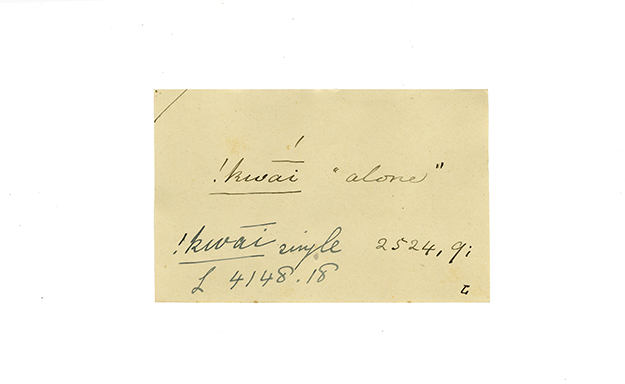 !kwāí "alone"
!kwāi single 2524, 9;
L 4148.18
L